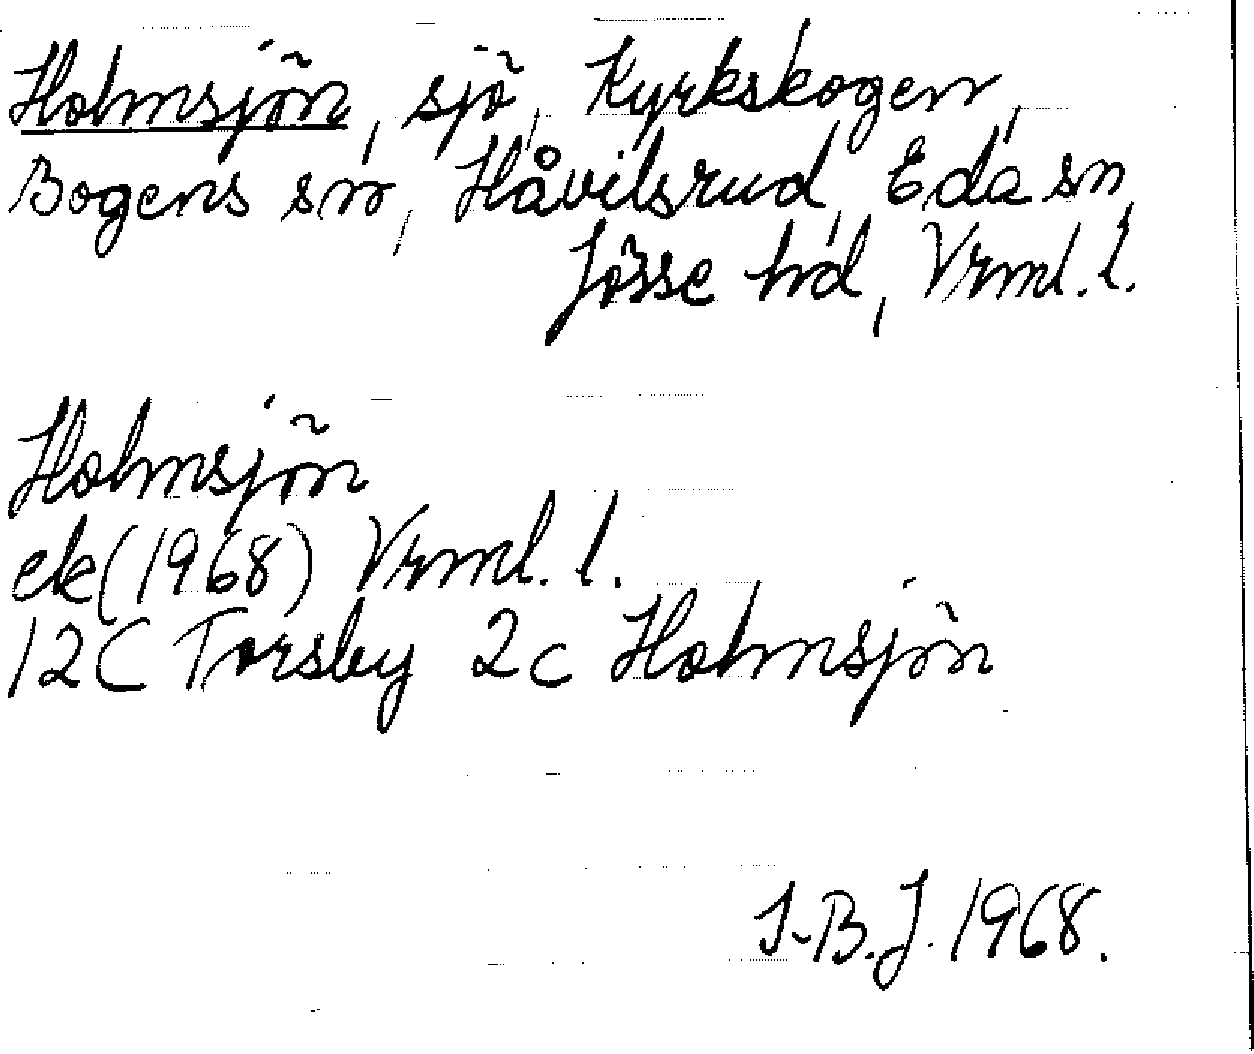 Holmsjön, sjö, Kyrkskogen,
Bogens sn, Håvilsrud, Eda sn,
Jösse hd, Vrml. l.
Holmsjön
ek (1968) Vrml. l.
12C Torsby 2c Holmsjön
I-B.J. 1968.